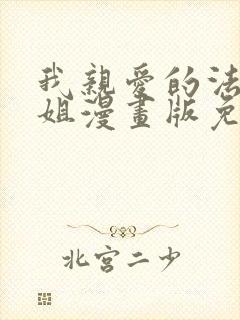 我親愛的法
姐漫畫版免
北宮二少